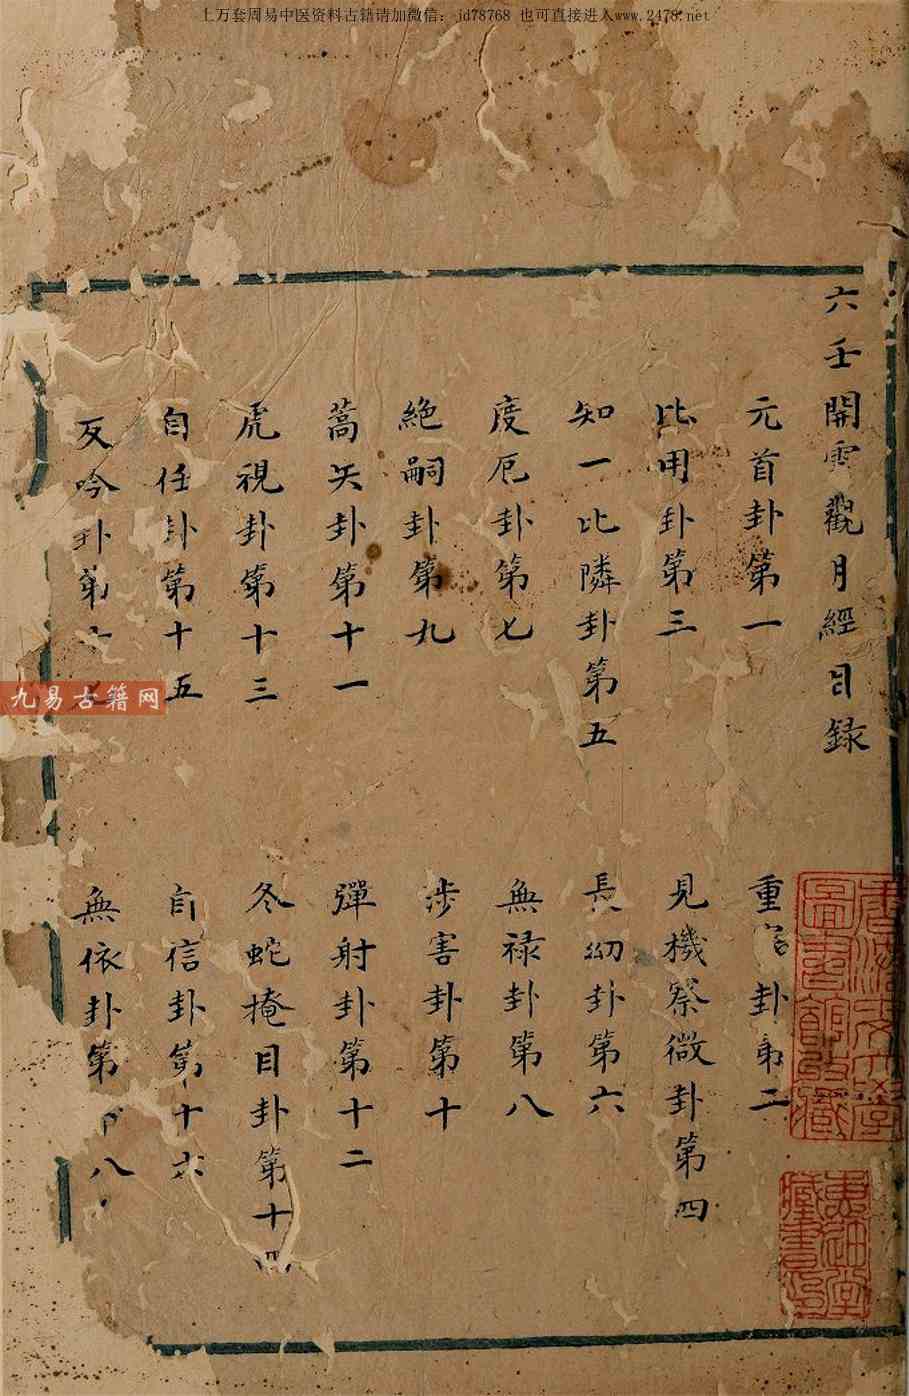 上万套周易中医资料古籍请加微信：jd78768 也可直接进入www.2478.net
六壬開雲觀月經目録
元首卦第一
重卦第二
比用卦第三
見機察微卦第四
知一比隣卦第五
長幼卦第六
度厄卦第七
無禄卦第八
絶嗣卦第九
涉害卦第十
蒿矢卦第十一
彈射卦第十二
虎視卦第十三
冬蛇掩目卦第十四
自任卦第十五
自信卦第十六
反吟卦第十
無依卦第八
九易古籍网
藏書印